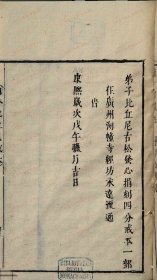 弟子比丘尼古松發心捐刻四分戒本一部
住廣州海幢寺經坊永遠流通
旹
康熙歲次戊午臘月吉日